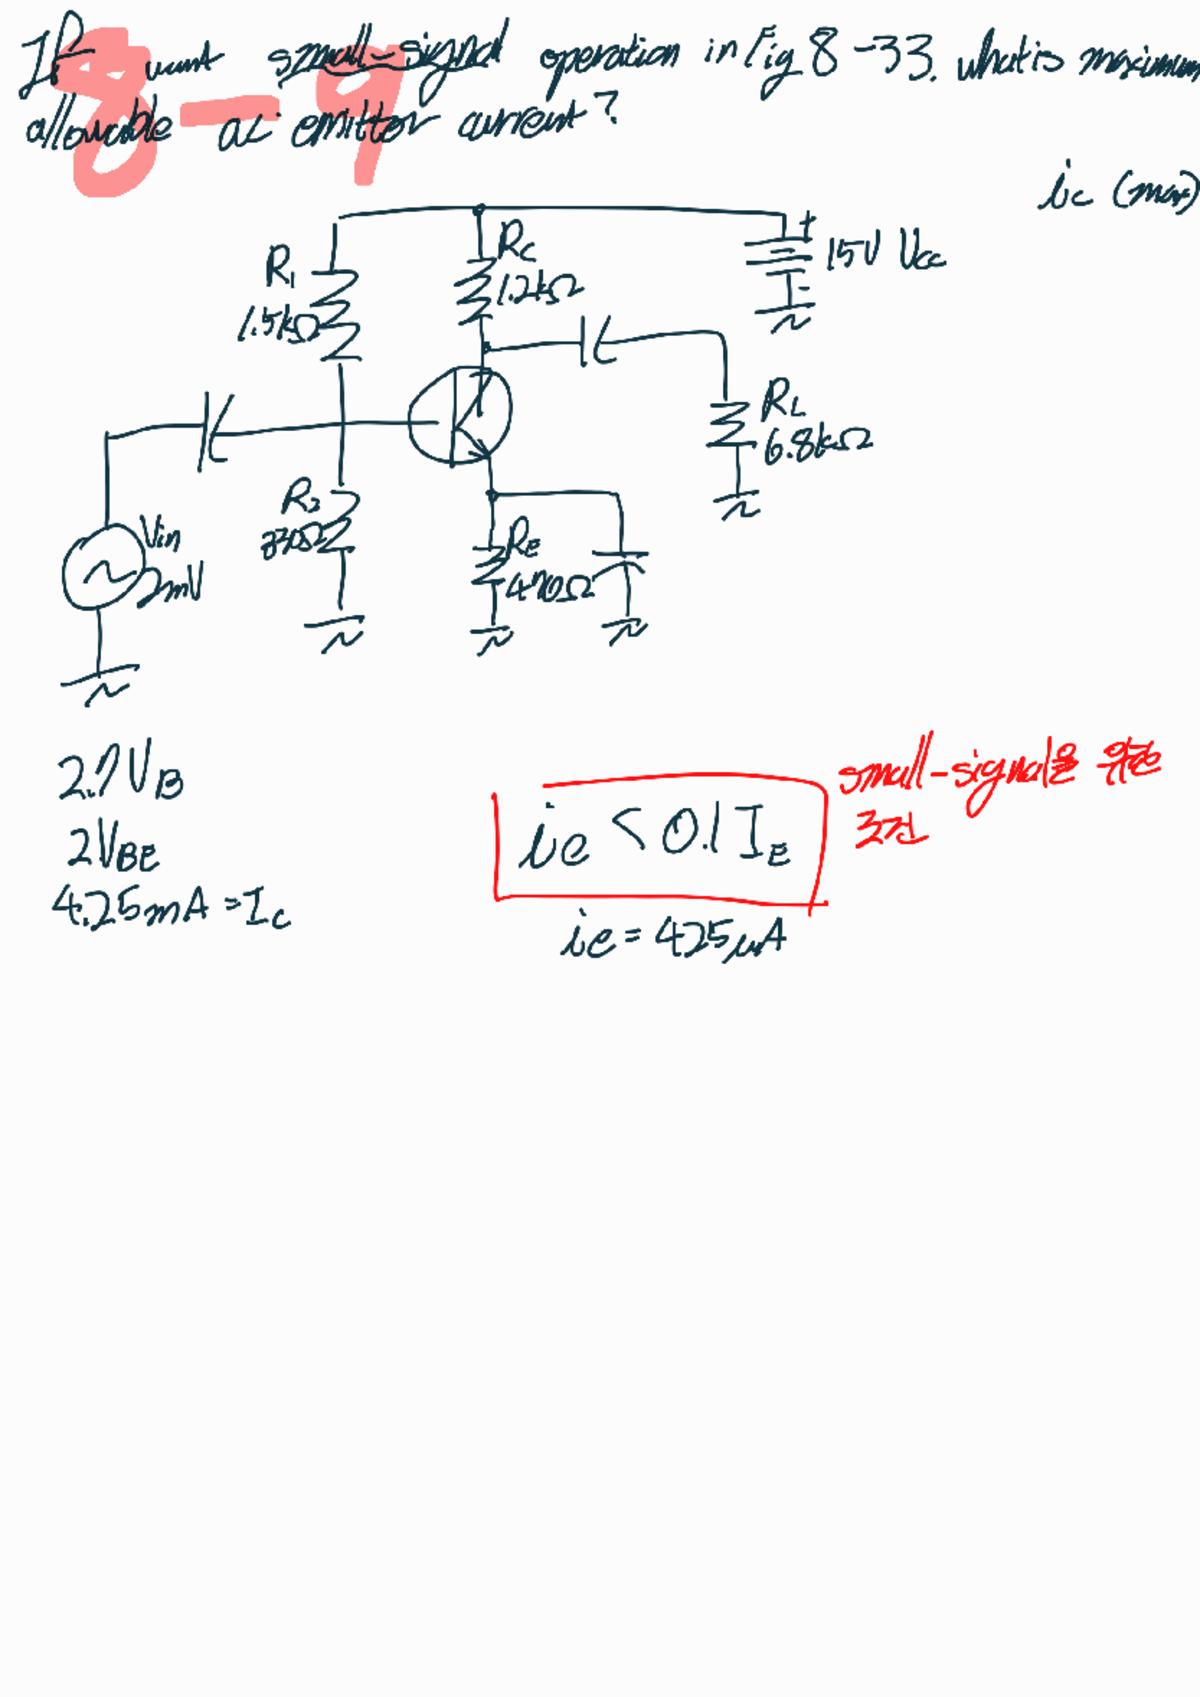 8-9
If want small-signal operation in Fig 8-33. what is maximum
allowable ac emittor current?
ic (max)
R1
1.5kΩ
RC
1.2kΩ
+
-
15V Vcc
RL
6.8kΩ
R2
330Ω
Vin
2mV
RE
470Ω
2.7VB
2VBE
4.25mA = IC
ie < 0.1 IE
small-signal을 위한
조건
ie = 425μA